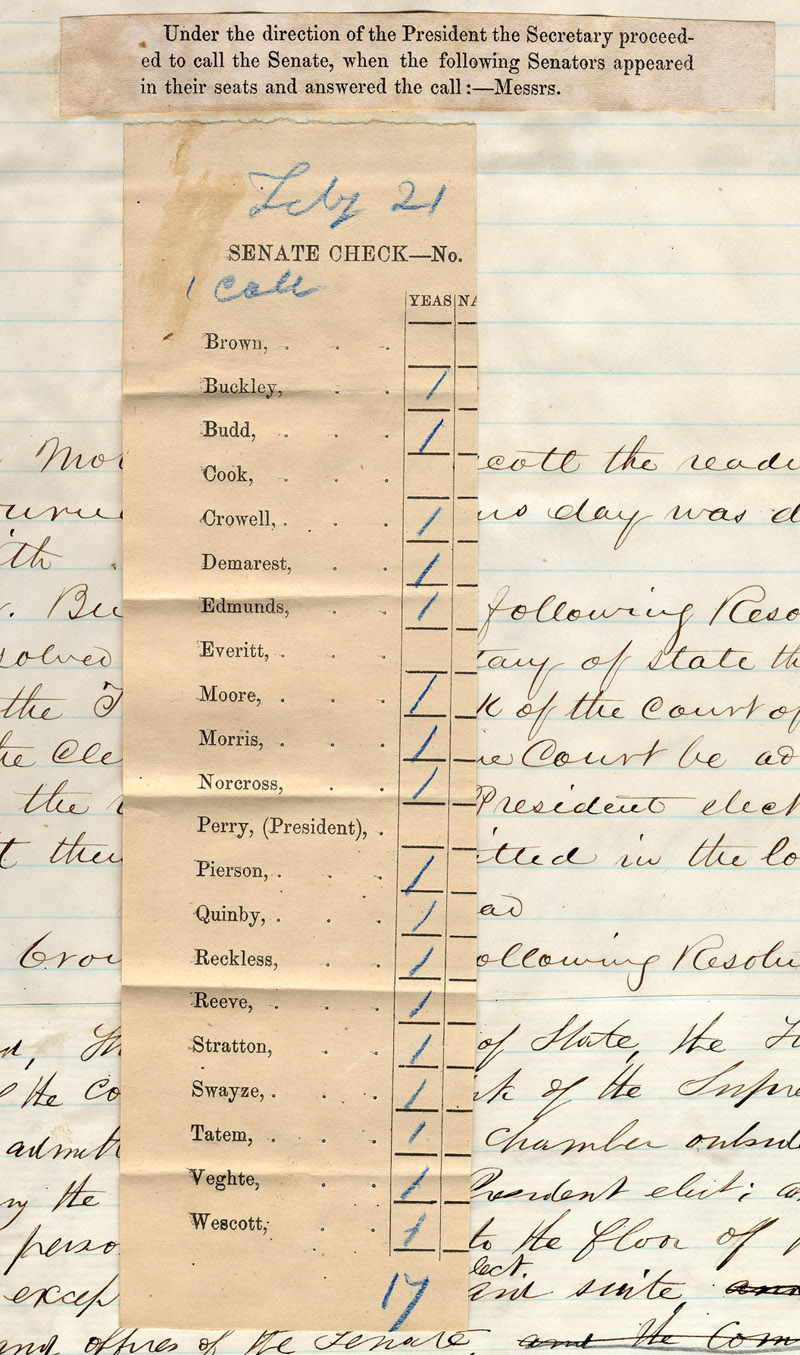 Under the direction of the President the Secretary proceed-
ed to call the Senate, when the following Senators appeared
in their seats and answered the call:—Messrs.
Feby 21
SENATE CHECK—No.
1 Call
YEAS NA
Brown, . . .
Buckley, . . 1
Budd, . . . 1
Cook, . . .
Crowell, . . . 1
Demarest, . . 1
Edmunds, . . 1
Everitt, . . .
Moore, . . . 1
Morris, . . . 1
Norcross, . . 1
Perry, (President), .
Pierson, . . . 1
Quinby, . . . 1
Reckless, . . 1
Reeve, . . . 1
Stratton, . . 1
Swayze, . . . 1
Tatem, . . . 1
Veghte, . . 1
Wescott, . . 1
17
Mot cott the readi
urne us day was d
ith
. Bu following Reso
solved tary of State th
the T k of the Court of
he Cle me Court be ad
the President elect
t then itted in the lo
ad
Crow ollowing Resolu
of State, the
the Co rk of the Supre
admitt Chamber outside
the President elect; a
perso to the floor of
lect
excep and suite and
and offices of the Senate, and the Com